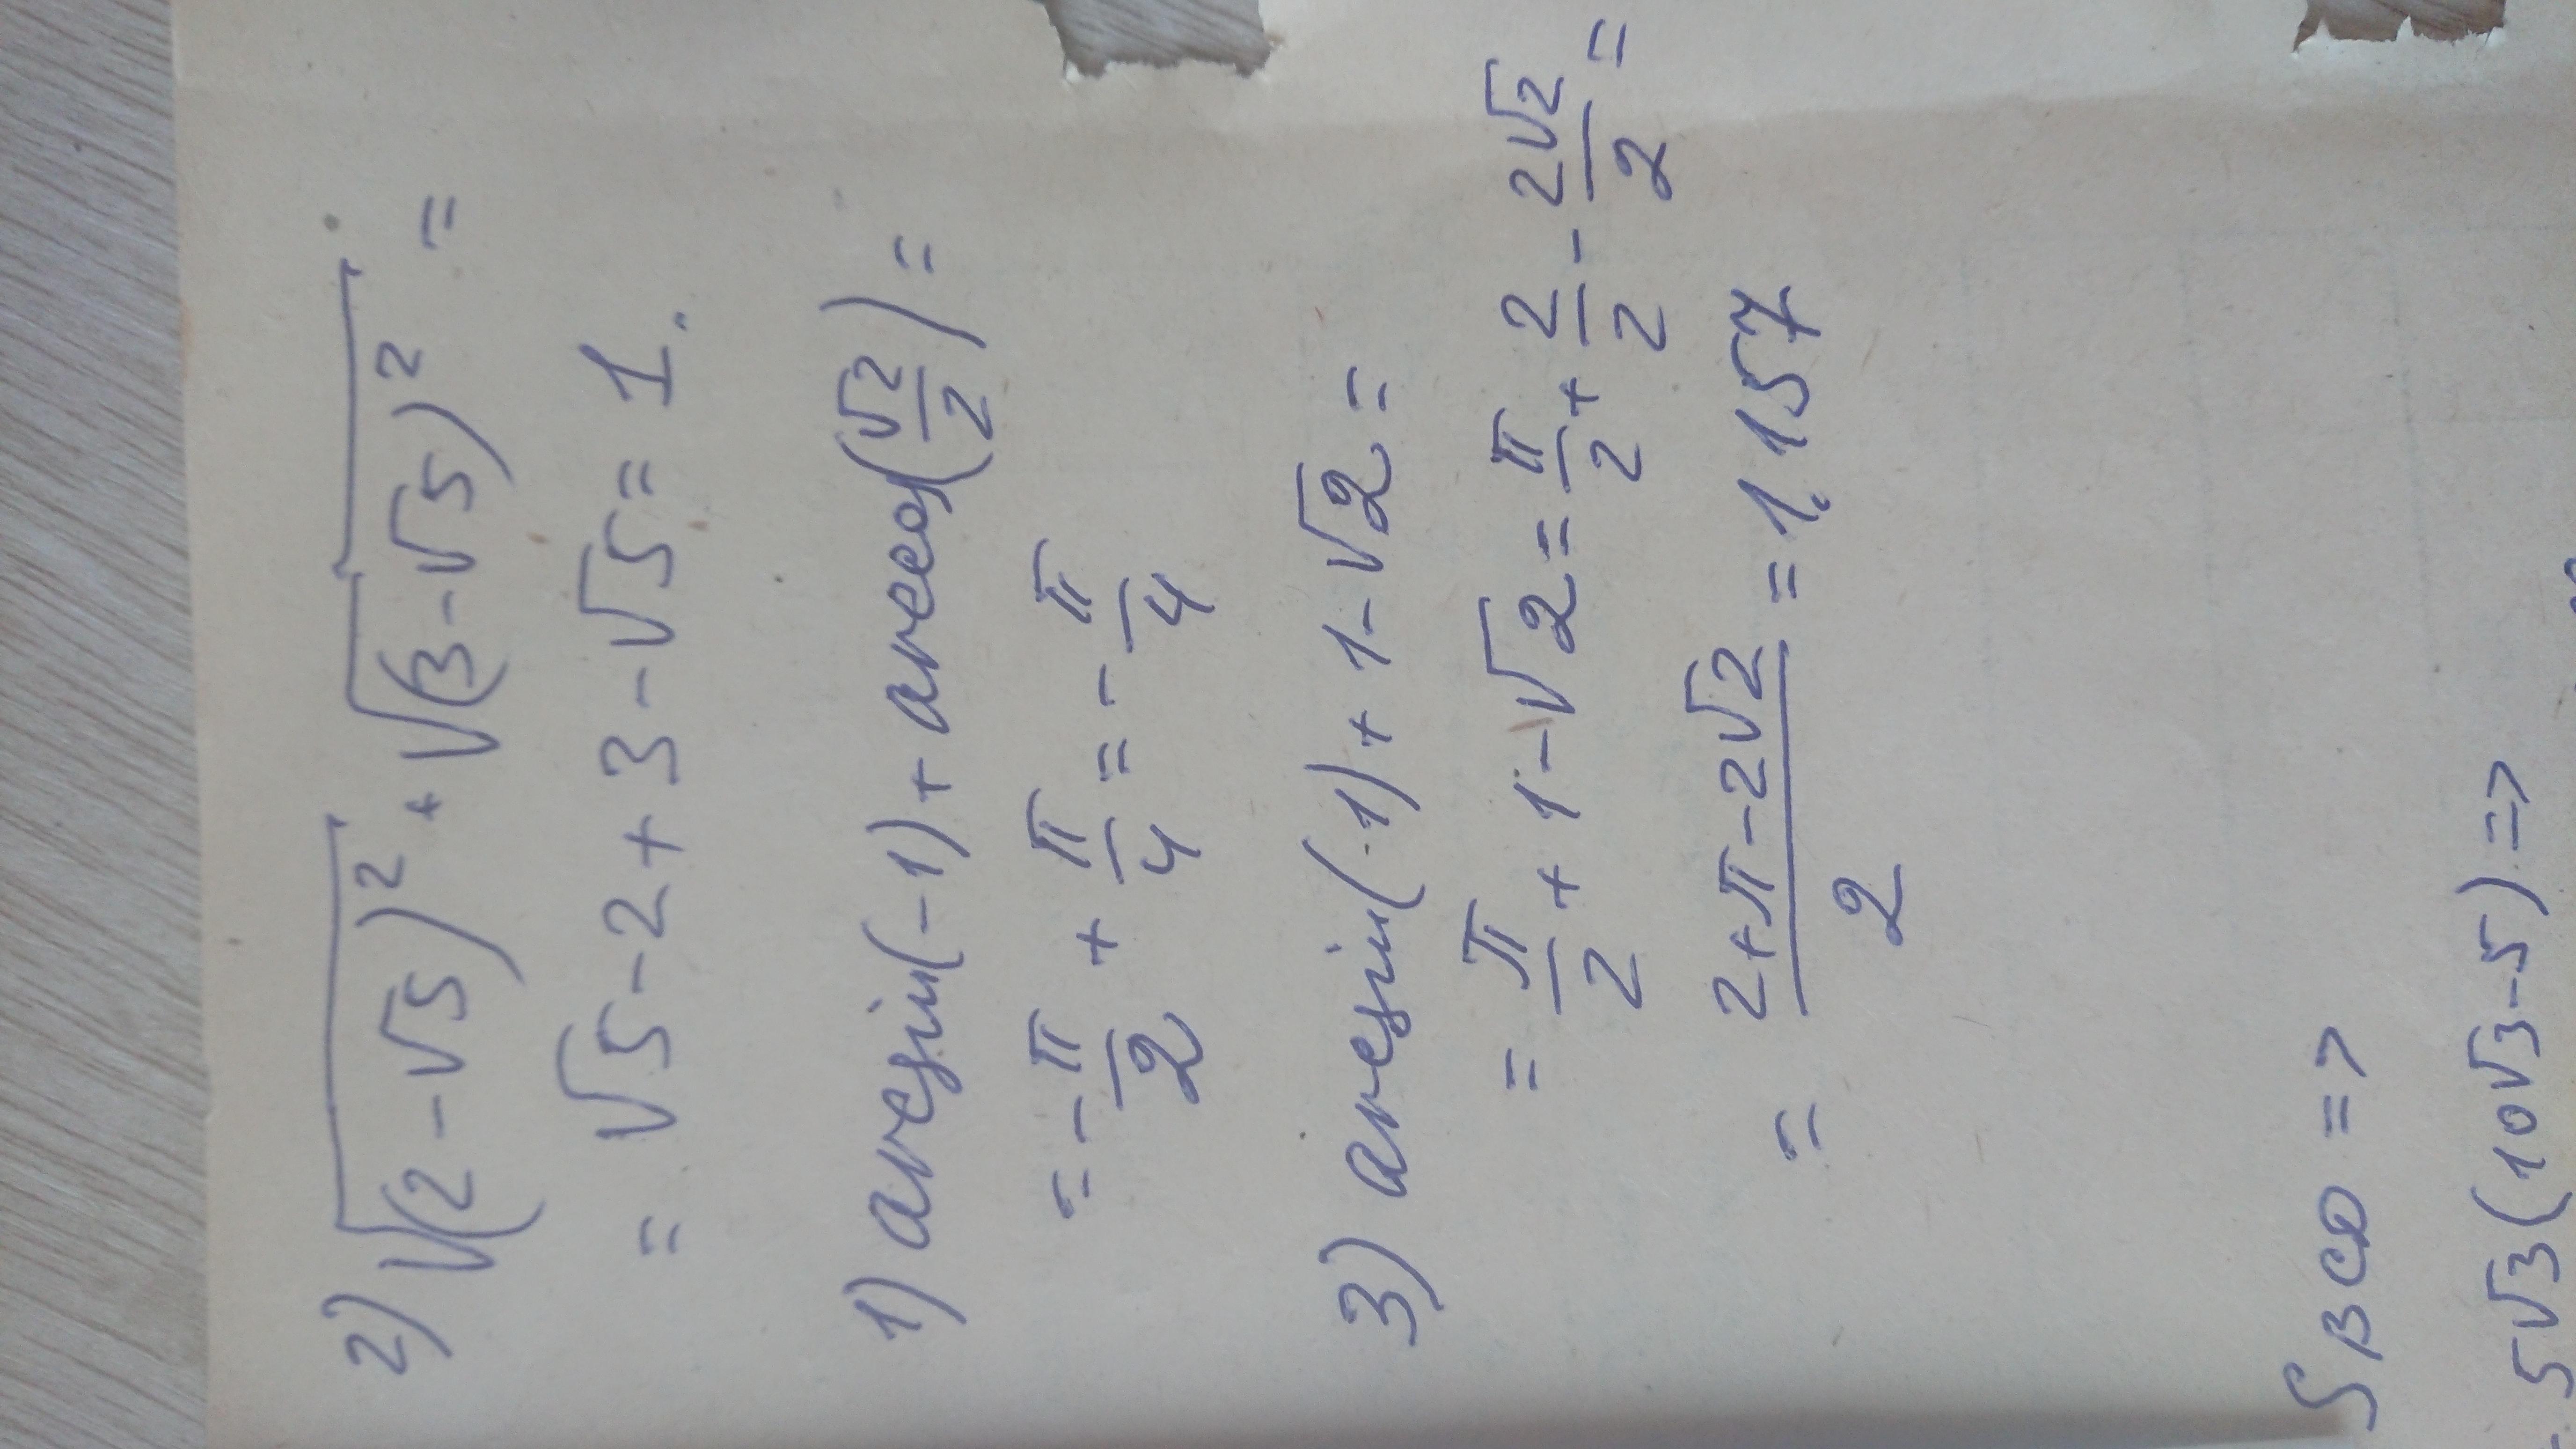 2) √(2-√5)² + √(3-√5)² =
= √5-2+3-√5=1.
1) arcsin(-1)+arccos(√2/2)=
=-π/2+π/4=-π/4
3) arcsin(-1)+1-√2=
=π/2+1-√2=π/2+2/2-2√2/2=
=(2+π-2√2)/2=1.157
S BCD =>
5√3(10√3-5)=>